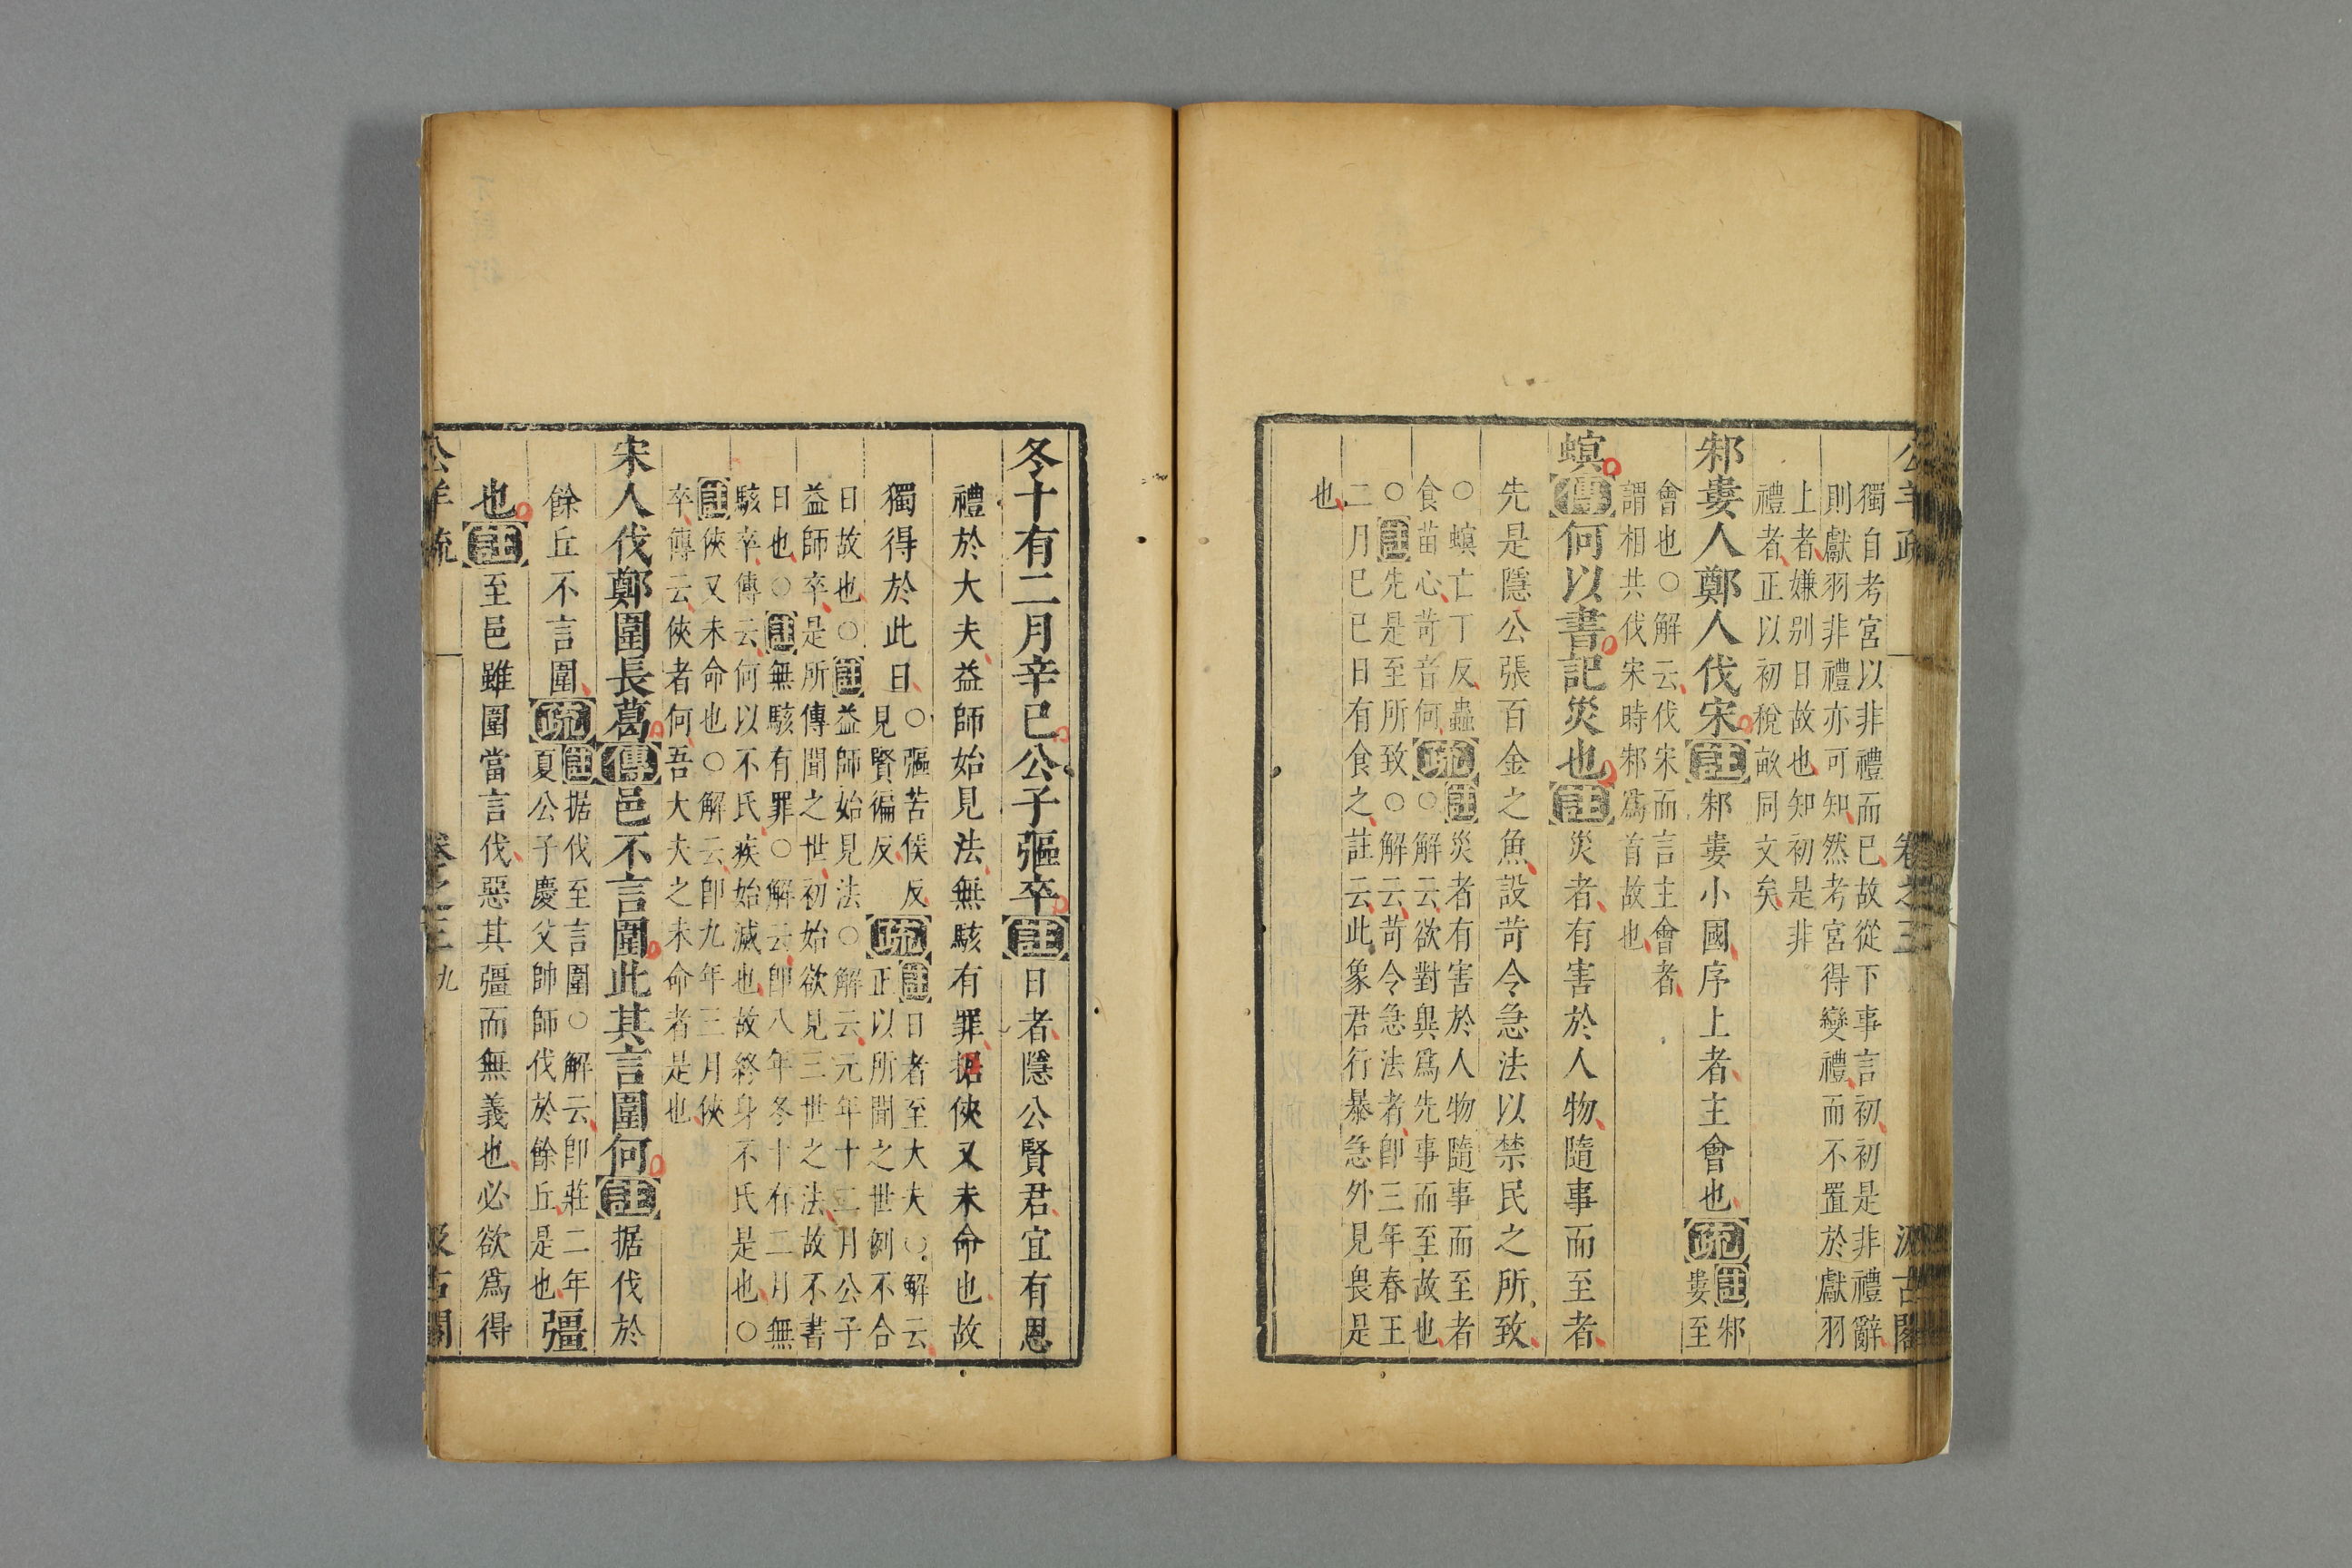 公羊疏 卷之三 汲古閣
獨自考宮以非禮而已故從下事言初初是非禮辭
則獻羽非禮亦可知然考宮得變禮而不置於獻羽
上者嫌別日故也知初是非
禮者正以初稅畝同文矣
邾婁人鄭人伐宋註邾婁小國序上者主會也疏註邾
婁至
會也○解云伐宋而言主會者
謂相共伐宋時邾爲首故也
螟傳何以書記災也註災者有害於人物隨事而至者
先是隱公張百金之魚設苛令急法以禁民之所致
○螟亡丁反蟲
食苗心苛音何疏註災者有害於人物隨事而至者
○解云欲對與爲先事而至故也
○註先是至所致○解云苛令急法者卽三年春王
二月巳巳日有食之註云此象君行暴急外見畏是
也
冬十有二月辛巳公子彄卒註日者隱公賢君宜有恩
禮於大夫益師始見法無駭有罪据俠又未命也故
獨得於此日○彄苦侯反
見賢徧反疏註日者至大夫○解云
正以所聞之世例不合
日故也○註益師始見法○解云元年十二月公子
益師卒是所傳聞之世初始欲見三世之法故不書
日也○註無駭有罪○解云卽八年冬十有二月無
駭卒傳云何以不氏疾始滅也故終身不氏是也○
註俠又未命也○解云卽九年三月俠
卒傳云俠者何吾大夫之未命者是也
宋人伐鄭圍長葛傳邑不言圍此其言圍何註据伐於
餘丘不言圍疏註据伐至言圍○解云卽莊二年
夏公子慶父帥師伐於餘丘是也彊
也註至邑雖圍當言伐惡其彊而無義也必欲爲得
公羊疏 卷之三 九 汲古閣